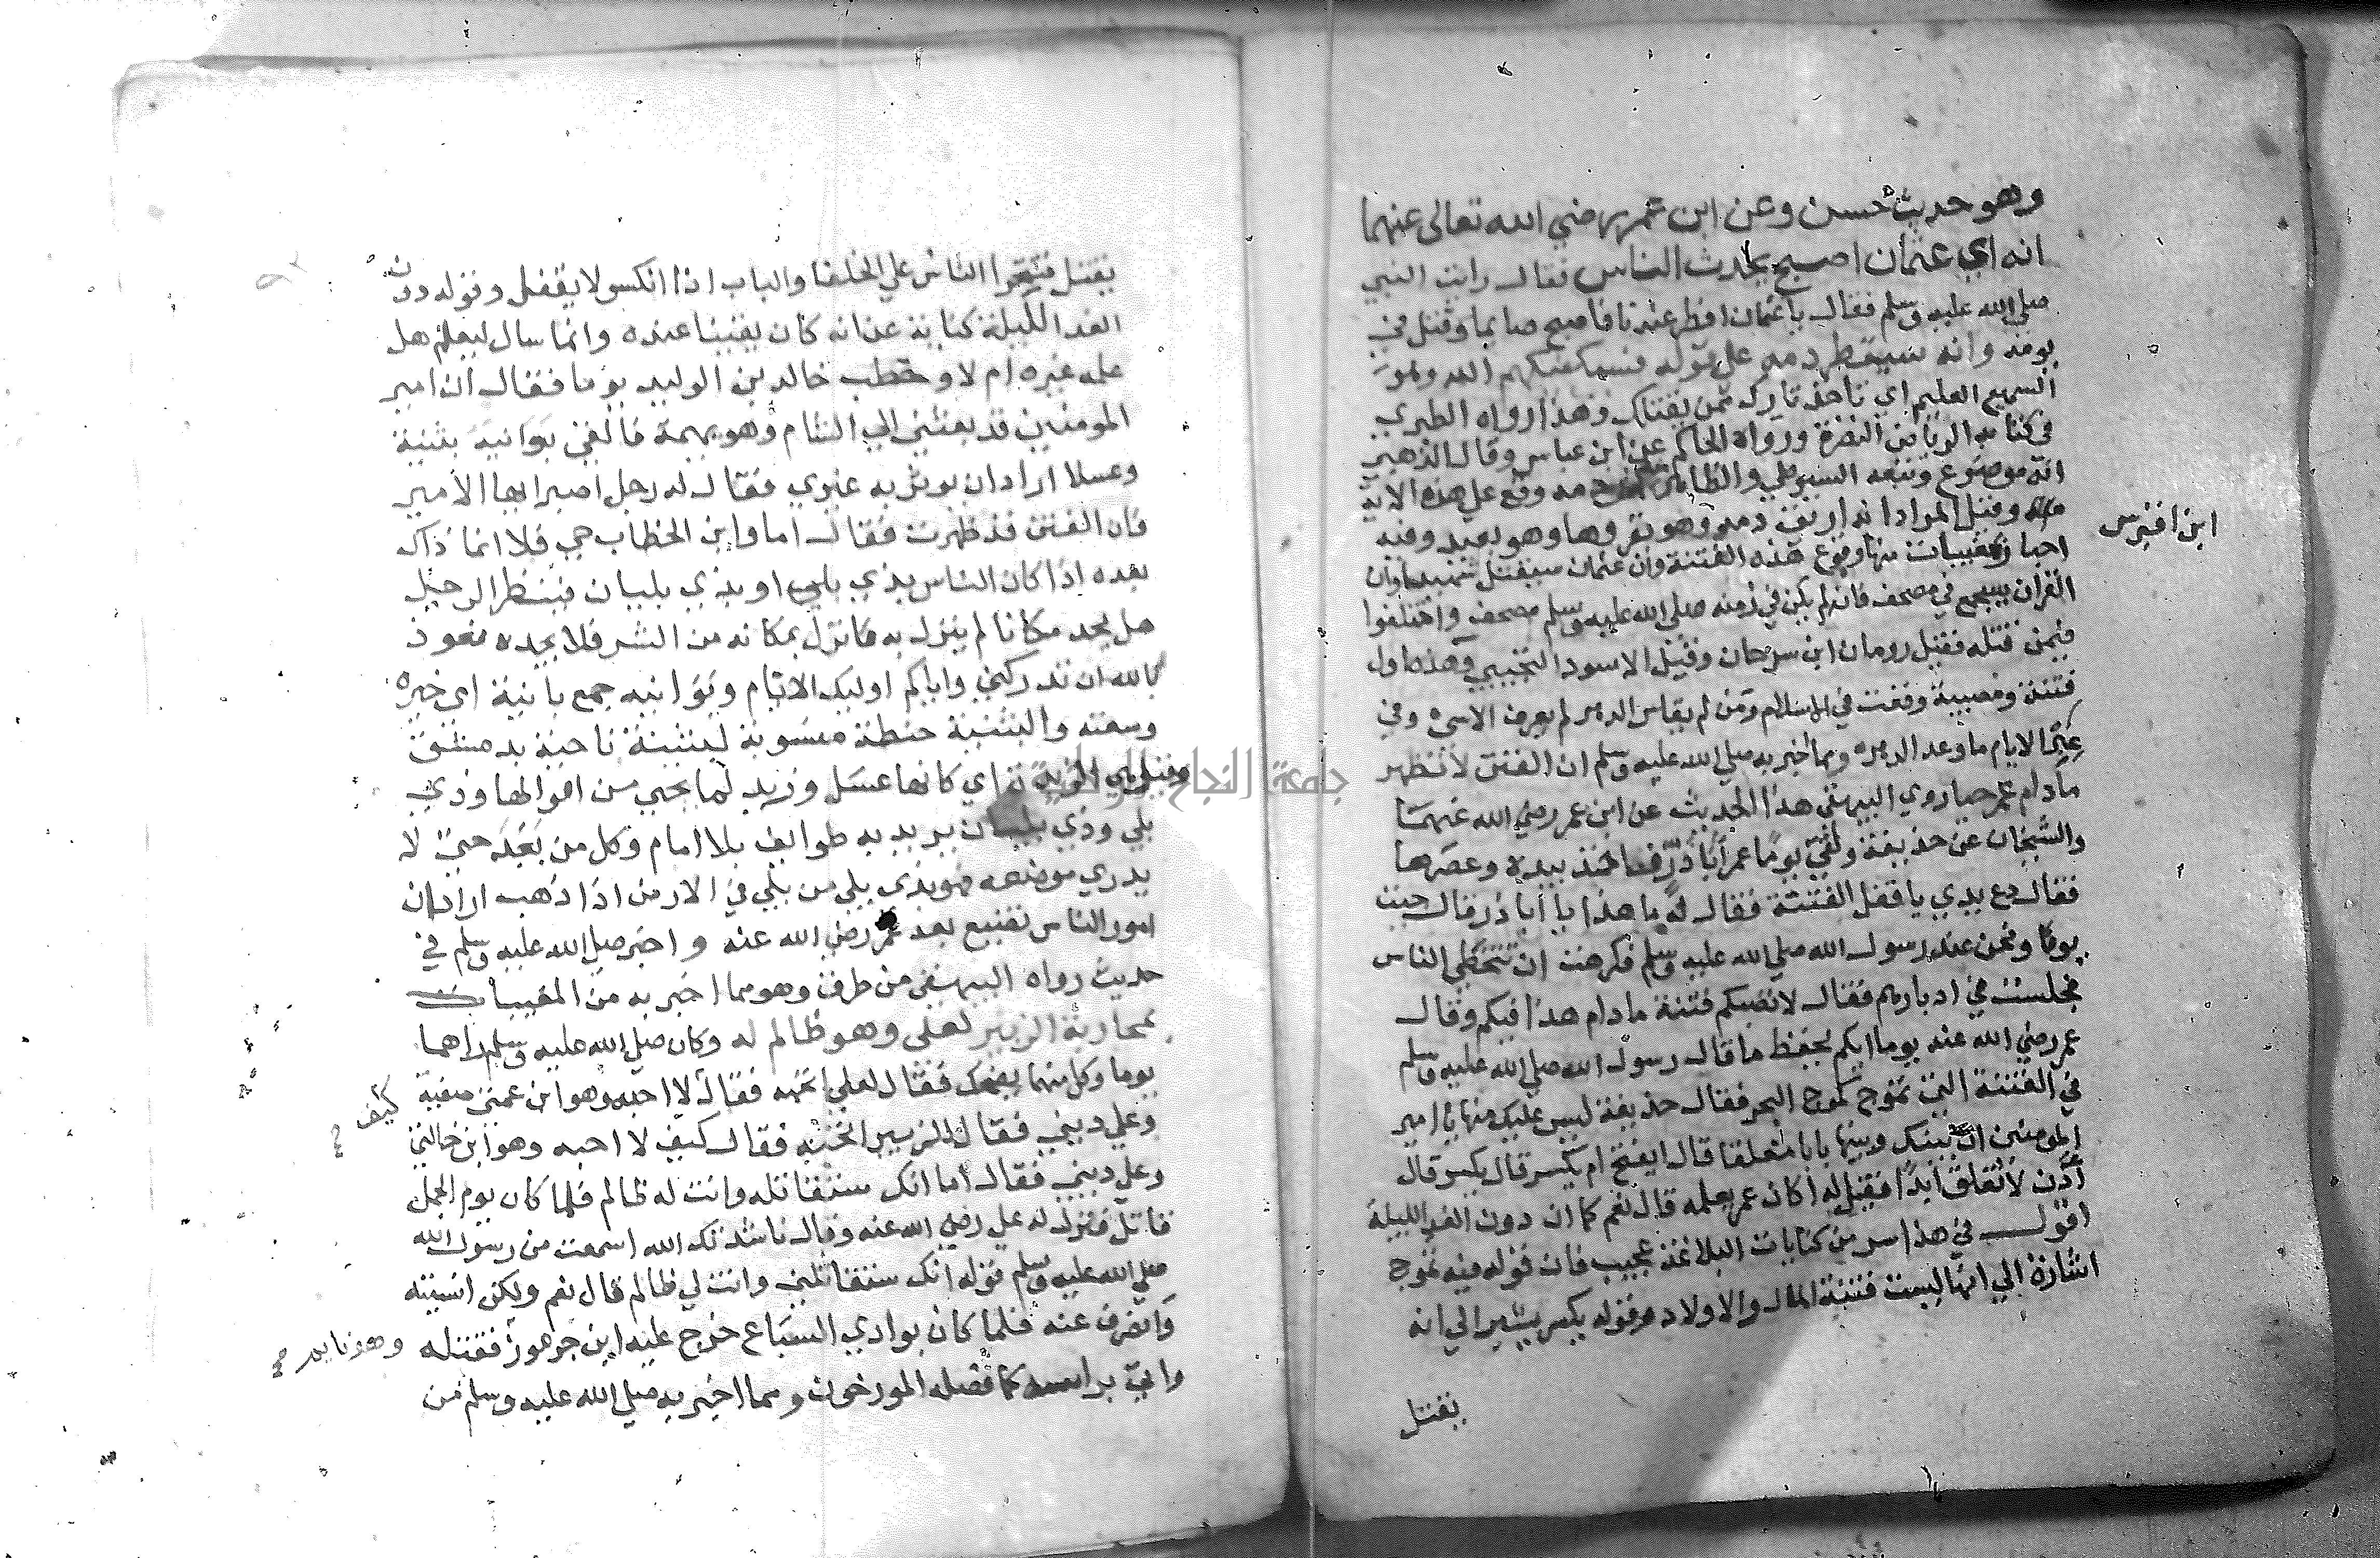 وهو حديث حسن وعن ابن عمر رضي الله تعالى عنهما
انه اي عثمان اصبح يحدث الناس فقال رايت النبي
صلى الله عليه وسلم فقال يا عثمان افطر عندنا فاصبح صايما وقتل في
يومه وانه سيقطر دمه على قوله فسيكفيكهم الله وهو
السميع العليم اي تاخذ تارك ممن يقتلك وهذا رواه الطبري
في كتابه الرياض النضرة ورواه الحاكم عن ابن عباس وقال الذهبي
انه موضوع وتبعه السيوطي والظاهر دمه وقع على هذه الاية
وقيل المراد انه اريق دمه وهو يقروها وهو بعيد وفيه
ابن اقبرس
اخبار بمغيبات منها وقوع هذه الفتنة وان عثمان سيقتل شهيدا وان
القران سيجمع في مصحف فانه لم يكن في زمنه صلى الله عليه وسلم مصحف واختلفوا
فيمن قتله فقيل رومان ابن سرحان وقيل الاسود التجيبي وهذه اول
فتنة ومصيبة وقعت في الاسلام ومن لم يقاس الدهر لم يعرف الاسى وفي
الايام ما وعد الدهر ومما اخبر به صلى الله عليه وسلم ان الفتن لا تظهر
مادام عمر حيا روي البيهقي هذا الحديث عن ابن عمر رضي الله عنهما
والشيخان عن حذيفة ولقي يوما عمر ابا ذر فاخذ بيده وعصرها
فقال دع يدي يا قفل الفتنة فقال له ما هذا يا ابا ذر قال جيت
يوما ونحن عند رسول الله صلى الله عليه وسلم فكرهت ان تتخطى الناس
فجلست في ادبارهم فقال لا تصبكم فتنة مادام هذا فيكم وقال
عمر رضي الله عنه يوما ايكم يحفظ ما قال رسول الله صلى الله عليه وسلم
في الفتنة التي تموج كموج البحر فقال حذيفة ليس عليك منها يا امير
المومنين ان بينك وبينها بابا مغلقا قال ايفتح ام يكسر قال يكسر قال
اذن لا تغلق ابدا فقيل له اكان عمر يعلمه قال نعم كما ان دون الغد الليلة
اقول في هذا سر من كنايات البلاغة عجيب فان قوله فيه تموج
اشارة الي انها ليست فتنة المال والاولاد وقوله يكسر يشير الي انه
يقتل
يقتل فتجرا الناس علي الخلفا والباب اذا انكسر لا يقفل وقوله دون
الغد الليلة كناية عن انه كان يقينا عنده وانما سال ليعلم هل
علمه غيره ام لا وخطب خالد بن الوليد يوما فقال ان امير
المومنين قد بعثني الي الشام وهو يهمه فالقي بوانيه بثنية
وعسلا اراد ان يوثر به غيري فقال له رجل اصبر ايها الامير
فان الفتن قد ظهرت فقال اما وابن الخطاب حي فلا انما ذاك
بعده اذا كان الناس بذي بلي او بذي بليان فينظر الرجل
هل يجد مكانا لم ينزل به ما نزل بمكانه من الشر فلا يجده فنعوذ
بالله ان تدركني واياكم اوليك الايام وبوانيه جمع بانية اي خيره
وسعته والبثنية حنطة منسوبة لبثنة ناحية بدمشق
وقيل هي الزبدة اي كانها عسل وزبد لما يجبي من اموالها وذي
بلي وذي بليان يريد به طوايف بلا امام وكل من بعد حتى لا
يدري موضعه فهو بذي بلي من بلي في الارض اذا ذهب اراد ان
امور الناس تضيع بعد عمر رضي الله عنه واخبر صلى الله عليه وسلم في
حديث رواه البيهقي من طرف وهو مما اخبر به من المغيبات
بمحاربة الزبير لعلي وهو ظالم له وكان صلى الله عليه وسلم راهما
يوما وكل منهما يضحك فقال لعلي اتحبه فقال لا احبه وهو ابن عمتي صفية
كيف
وعلي ديني فقال للزبير اتحبه فقال كيف لا احبه وهو ابن خالتي
وعلي ديني فقال اما انك ستقاتله وانت له ظالم فلما كان يوم الجمل
قاتل فنزل له علي رضي الله عنه وقال ناشدتك الله اسمعت من رسول الله
صلى الله عليه وسلم قوله انك ستقاتلني وانت لي ظالم قال نعم ولكن انسيته
وانصرف عنه فلما كان بوادي السباع خرج عليه ابن جرموز فقتله
وهو نايم
واتي براسه كما فصله المورخون ومما اخبر به صلى الله عليه وسلم من
جامعة النجاح الوطنية